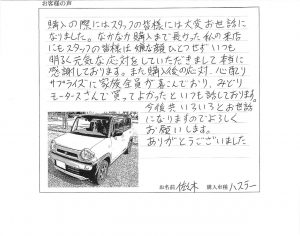 お客様の声
購入の際にはスタッフの皆様には大変お世話に
なりました。なかなか購入まで長かった私の来店
にもスタッフの皆様は嫌な顔ひとつせずいつも
明るく元気な応対をしていただきまして本当に
感謝しております。また購入後の応対、心配り
サプライズに家族全員が喜んでおり、みどり
モータースさんで買ってよかったといつも話しております。
今後共いろいろとお世話
になりますのでよろしく
お願いします。
ありがとうございました
お名前 佐木 購入車種 ハスラー